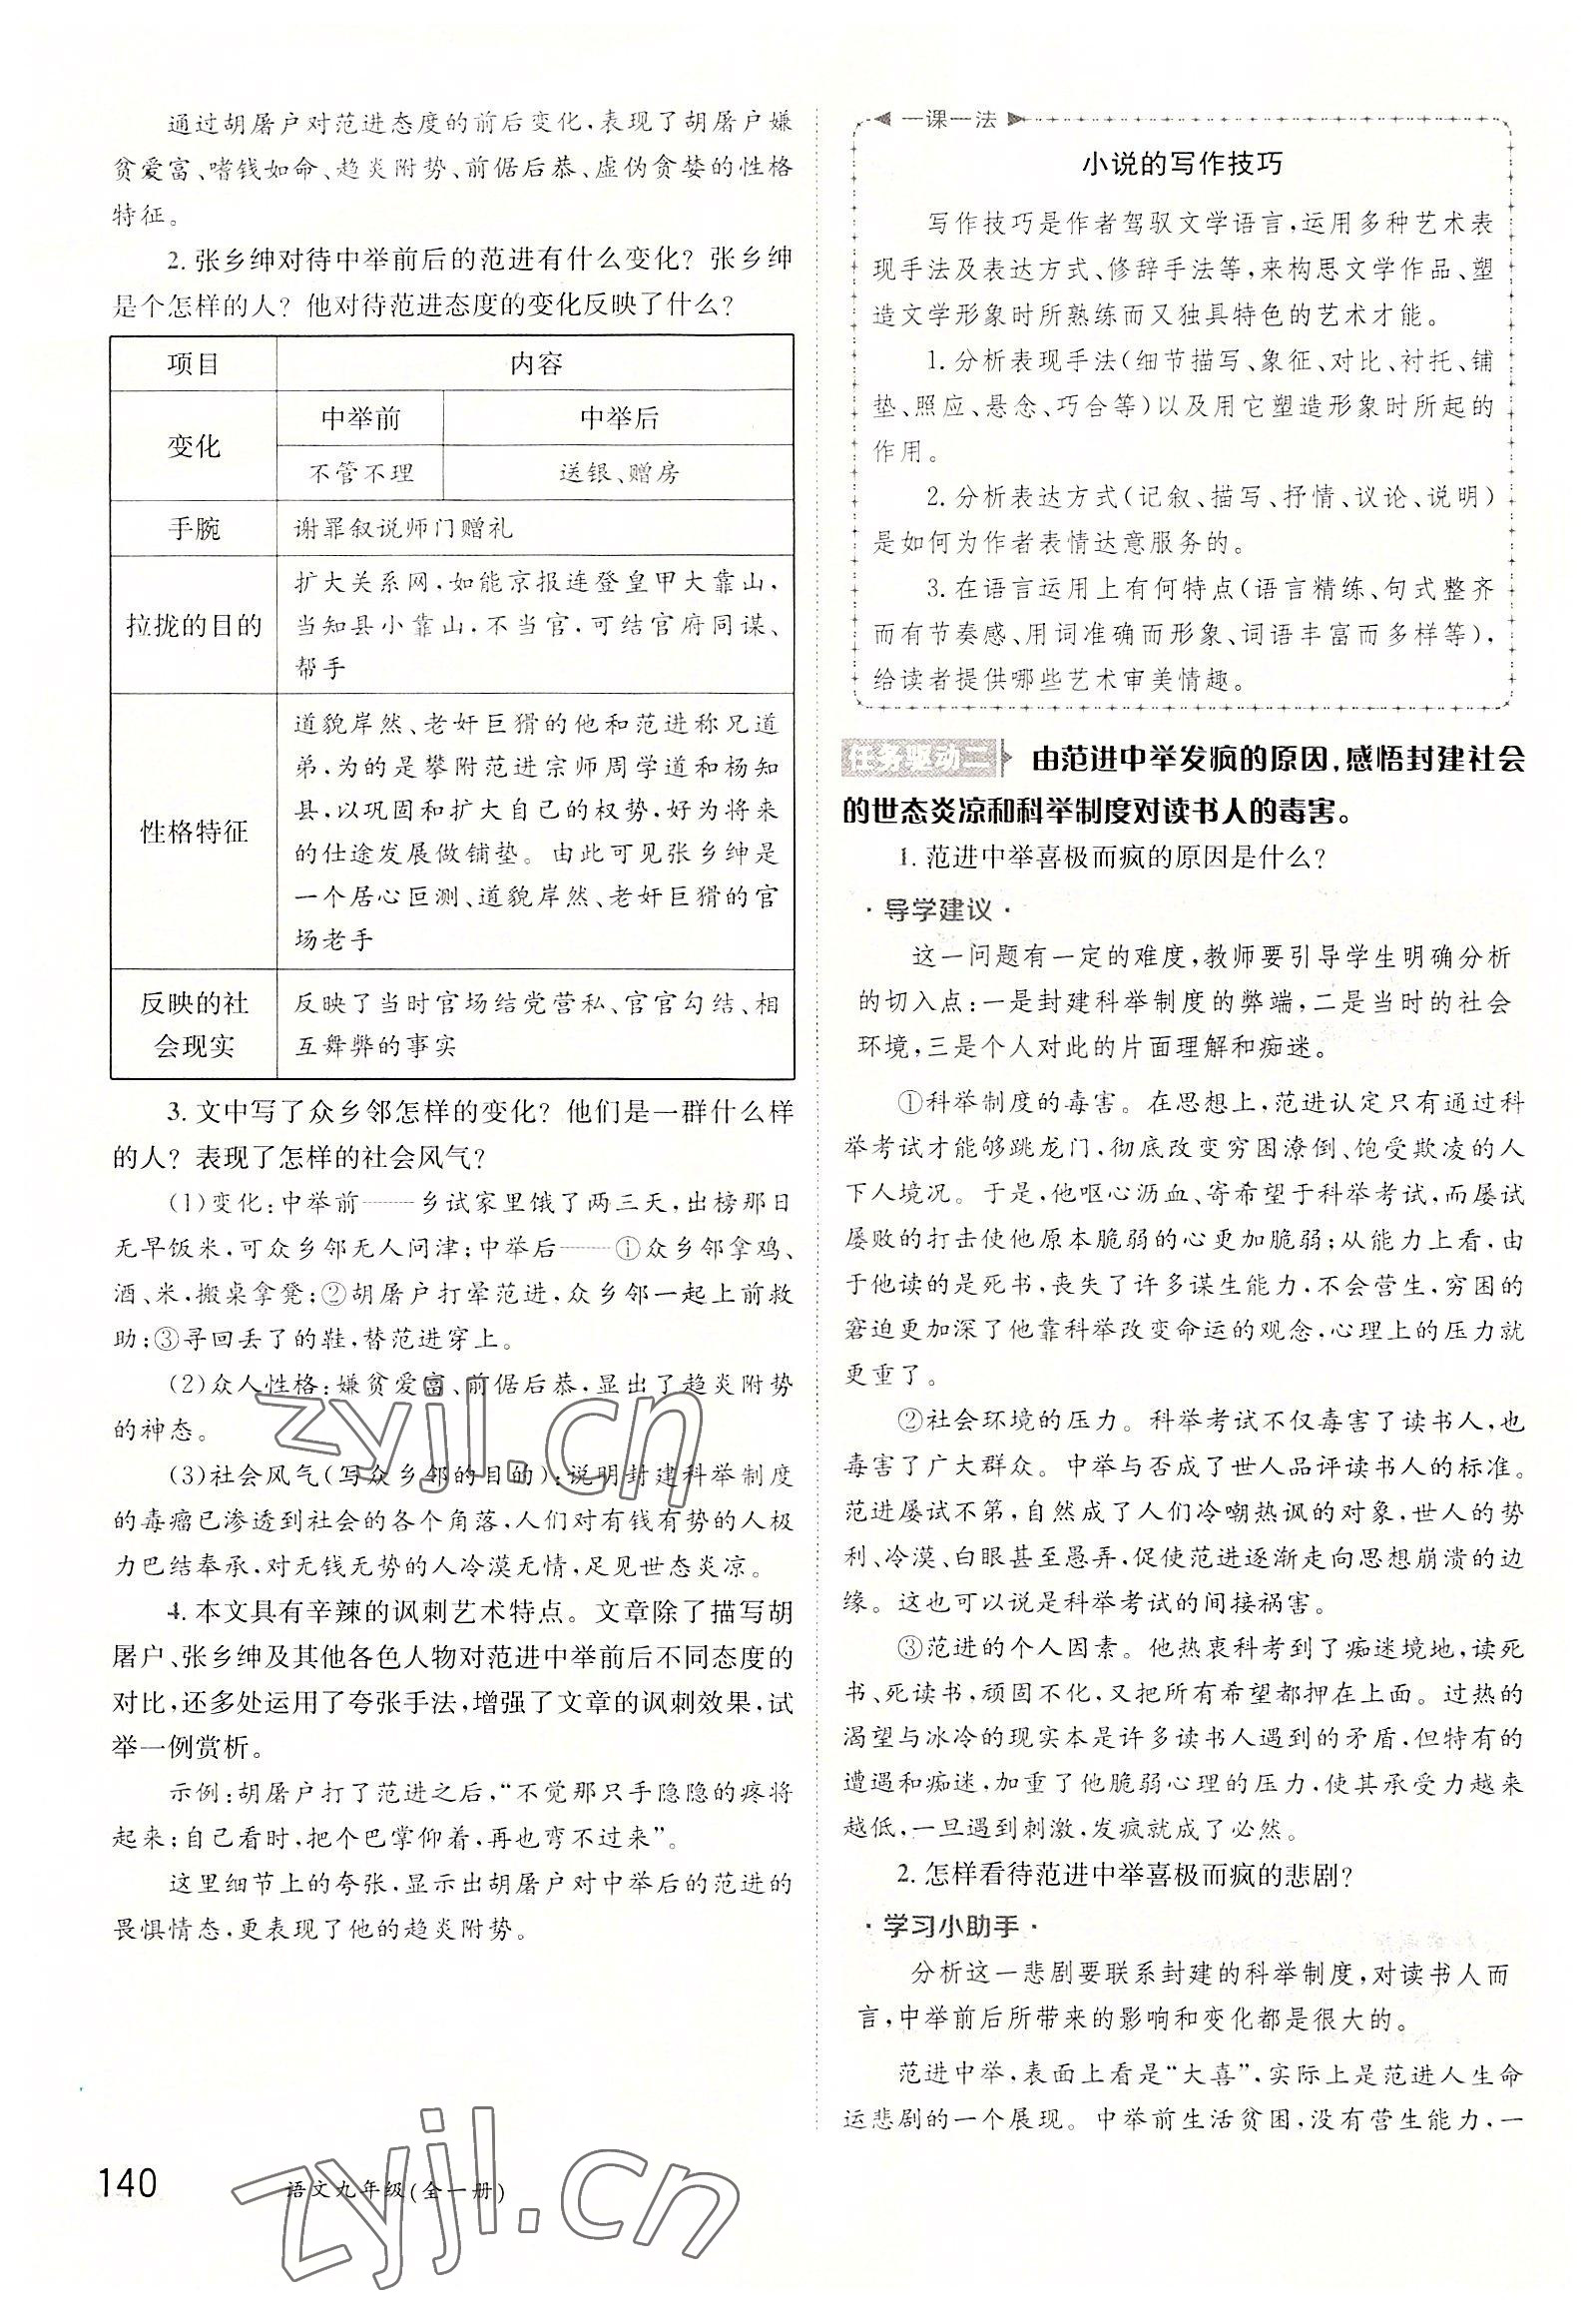 通过胡屠户对范进态度的前后变化,表现了胡屠户嫌
贫爱富、嗜钱如命、趋炎附势、前倨后恭、虚伪贪婪的性格
特征。
2. 张乡绅对待中举前后的范进有什么变化? 张乡绅
是个怎样的人? 他对待范进态度的变化反映了什么?
项目 内容
变化 中举前 中举后
不管不理 送银、赠房
手腕 谢罪叙说师门赠礼
拉拢的目的 扩大关系网,如能京报连登皇甲大靠山,
当知县小靠山,不当官,可结官府同谋、
帮手
性格特征 道貌岸然、老奸巨猾的他和范进称兄道
弟,为的是攀附范进宗师周学道和杨知
县,以巩固和扩大自己的权势,好为将来
的仕途发展做铺垫。由此可见张乡绅是
一个居心叵测、道貌岸然、老奸巨猾的官
场老手
反映的社
会现实 反映了当时官场结党营私、官官勾结、相
互舞弊的事实
3. 文中写了众乡邻怎样的变化? 他们是一群什么样
的人? 表现了怎样的社会风气?
(1)变化:中举前——乡试家里饿了两三天,出榜那日
无早饭米,可众乡邻无人问津;中举后——①众乡邻拿鸡、
酒、米,搬桌拿凳;②胡屠户打晕范进,众乡邻一起上前救
助;③寻回丢了的鞋,替范进穿上。
(2)众人性格:嫌贫爱富、前倨后恭,显出了趋炎附势
的神态。
(3)社会风气(写众乡邻的目的):说明封建科举制度
的毒瘤已渗透到社会的各个角落,人们对有钱有势的人极
力巴结奉承,对无钱无势的人冷漠无情,足见世态炎凉。
4. 本文具有辛辣的讽刺艺术特点。文章除了描写胡
屠户、张乡绅及其他各色人物对范进中举前后不同态度的
对比,还多处运用了夸张手法,增强了文章的讽刺效果,试
举一例赏析。
示例:胡屠户打了范进之后,“不觉那只手隐隐的疼将
起来;自己看时,把个巴掌仰着,再也弯不过来”。
这里细节上的夸张,显示出胡屠户对中举后的范进的
畏惧情态,更表现了他的趋炎附势。
一课一法
小说的写作技巧
写作技巧是作者驾驭文学语言,运用多种艺术表
现手法及表达方式、修辞手法等,来构思文学作品、塑
造文学形象时所熟练而又独具特色的艺术才能。
1. 分析表现手法(细节描写、象征、对比、衬托、铺
垫、照应、悬念、巧合等)以及用它塑造形象时所起的
作用。
2. 分析表达方式(记叙、描写、抒情、议论、说明)
是如何为作者表情达意服务的。
3. 在语言运用上有何特点(语言精练、句式整齐
而有节奏感、用词准确而形象、词语丰富而多样等),
给读者提供哪些艺术审美情趣。
任务驱动二 由范进中举发疯的原因,感悟封建社会
的世态炎凉和科举制度对读书人的毒害。
1. 范进中举喜极而疯的原因是什么?
·导学建议·
这一问题有一定的难度,教师要引导学生明确分析
的切入点:一是封建科举制度的弊端,二是当时的社会
环境,三是个人对此的片面理解和痴迷。
①科举制度的毒害。在思想上,范进认定只有通过科
举考试才能够跳龙门,彻底改变穷困潦倒、饱受欺凌的人
下人境况。于是,他呕心沥血、寄希望于科举考试,而屡试
屡败的打击使他原本脆弱的心更加脆弱;从能力上看,由
于他读的是死书,丧失了许多谋生能力,不会营生,穷困的
窘迫更加深了他靠科举改变命运的观念,心理上的压力就
更重了。
②社会环境的压力。科举考试不仅毒害了读书人,也
毒害了广大群众。中举与否成了世人品评读书人的标准。
范进屡试不第,自然成了人们冷嘲热讽的对象,世人的势
利、冷漠、白眼甚至愚弄,促使范进逐渐走向思想崩溃的边
缘。这也可以说是科举考试的间接祸害。
③范进的个人因素。他热衷科考到了痴迷境地,读死
书、死读书,顽固不化,又把所有希望都押在上面。过热的
渴望与冰冷的现实本是许多读书人遇到的矛盾,但特有的
遭遇和痴迷,加重了他脆弱心理的压力,使其承受力越来
越低,一旦遇到刺激,发疯就成了必然。
2. 怎样看待范进中举喜极而疯的悲剧?
·学习小助手·
分析这一悲剧要联系封建的科举制度,对读书人而
言,中举前后所带来的影响和变化都是很大的。
范进中举,表面上看是“大喜”,实际上是范进人生命
运悲剧的一个展现。中举前生活贫困,没有营生能力,一
140 语文九年级(全一册)
zyjl.cn
zyjl.cn